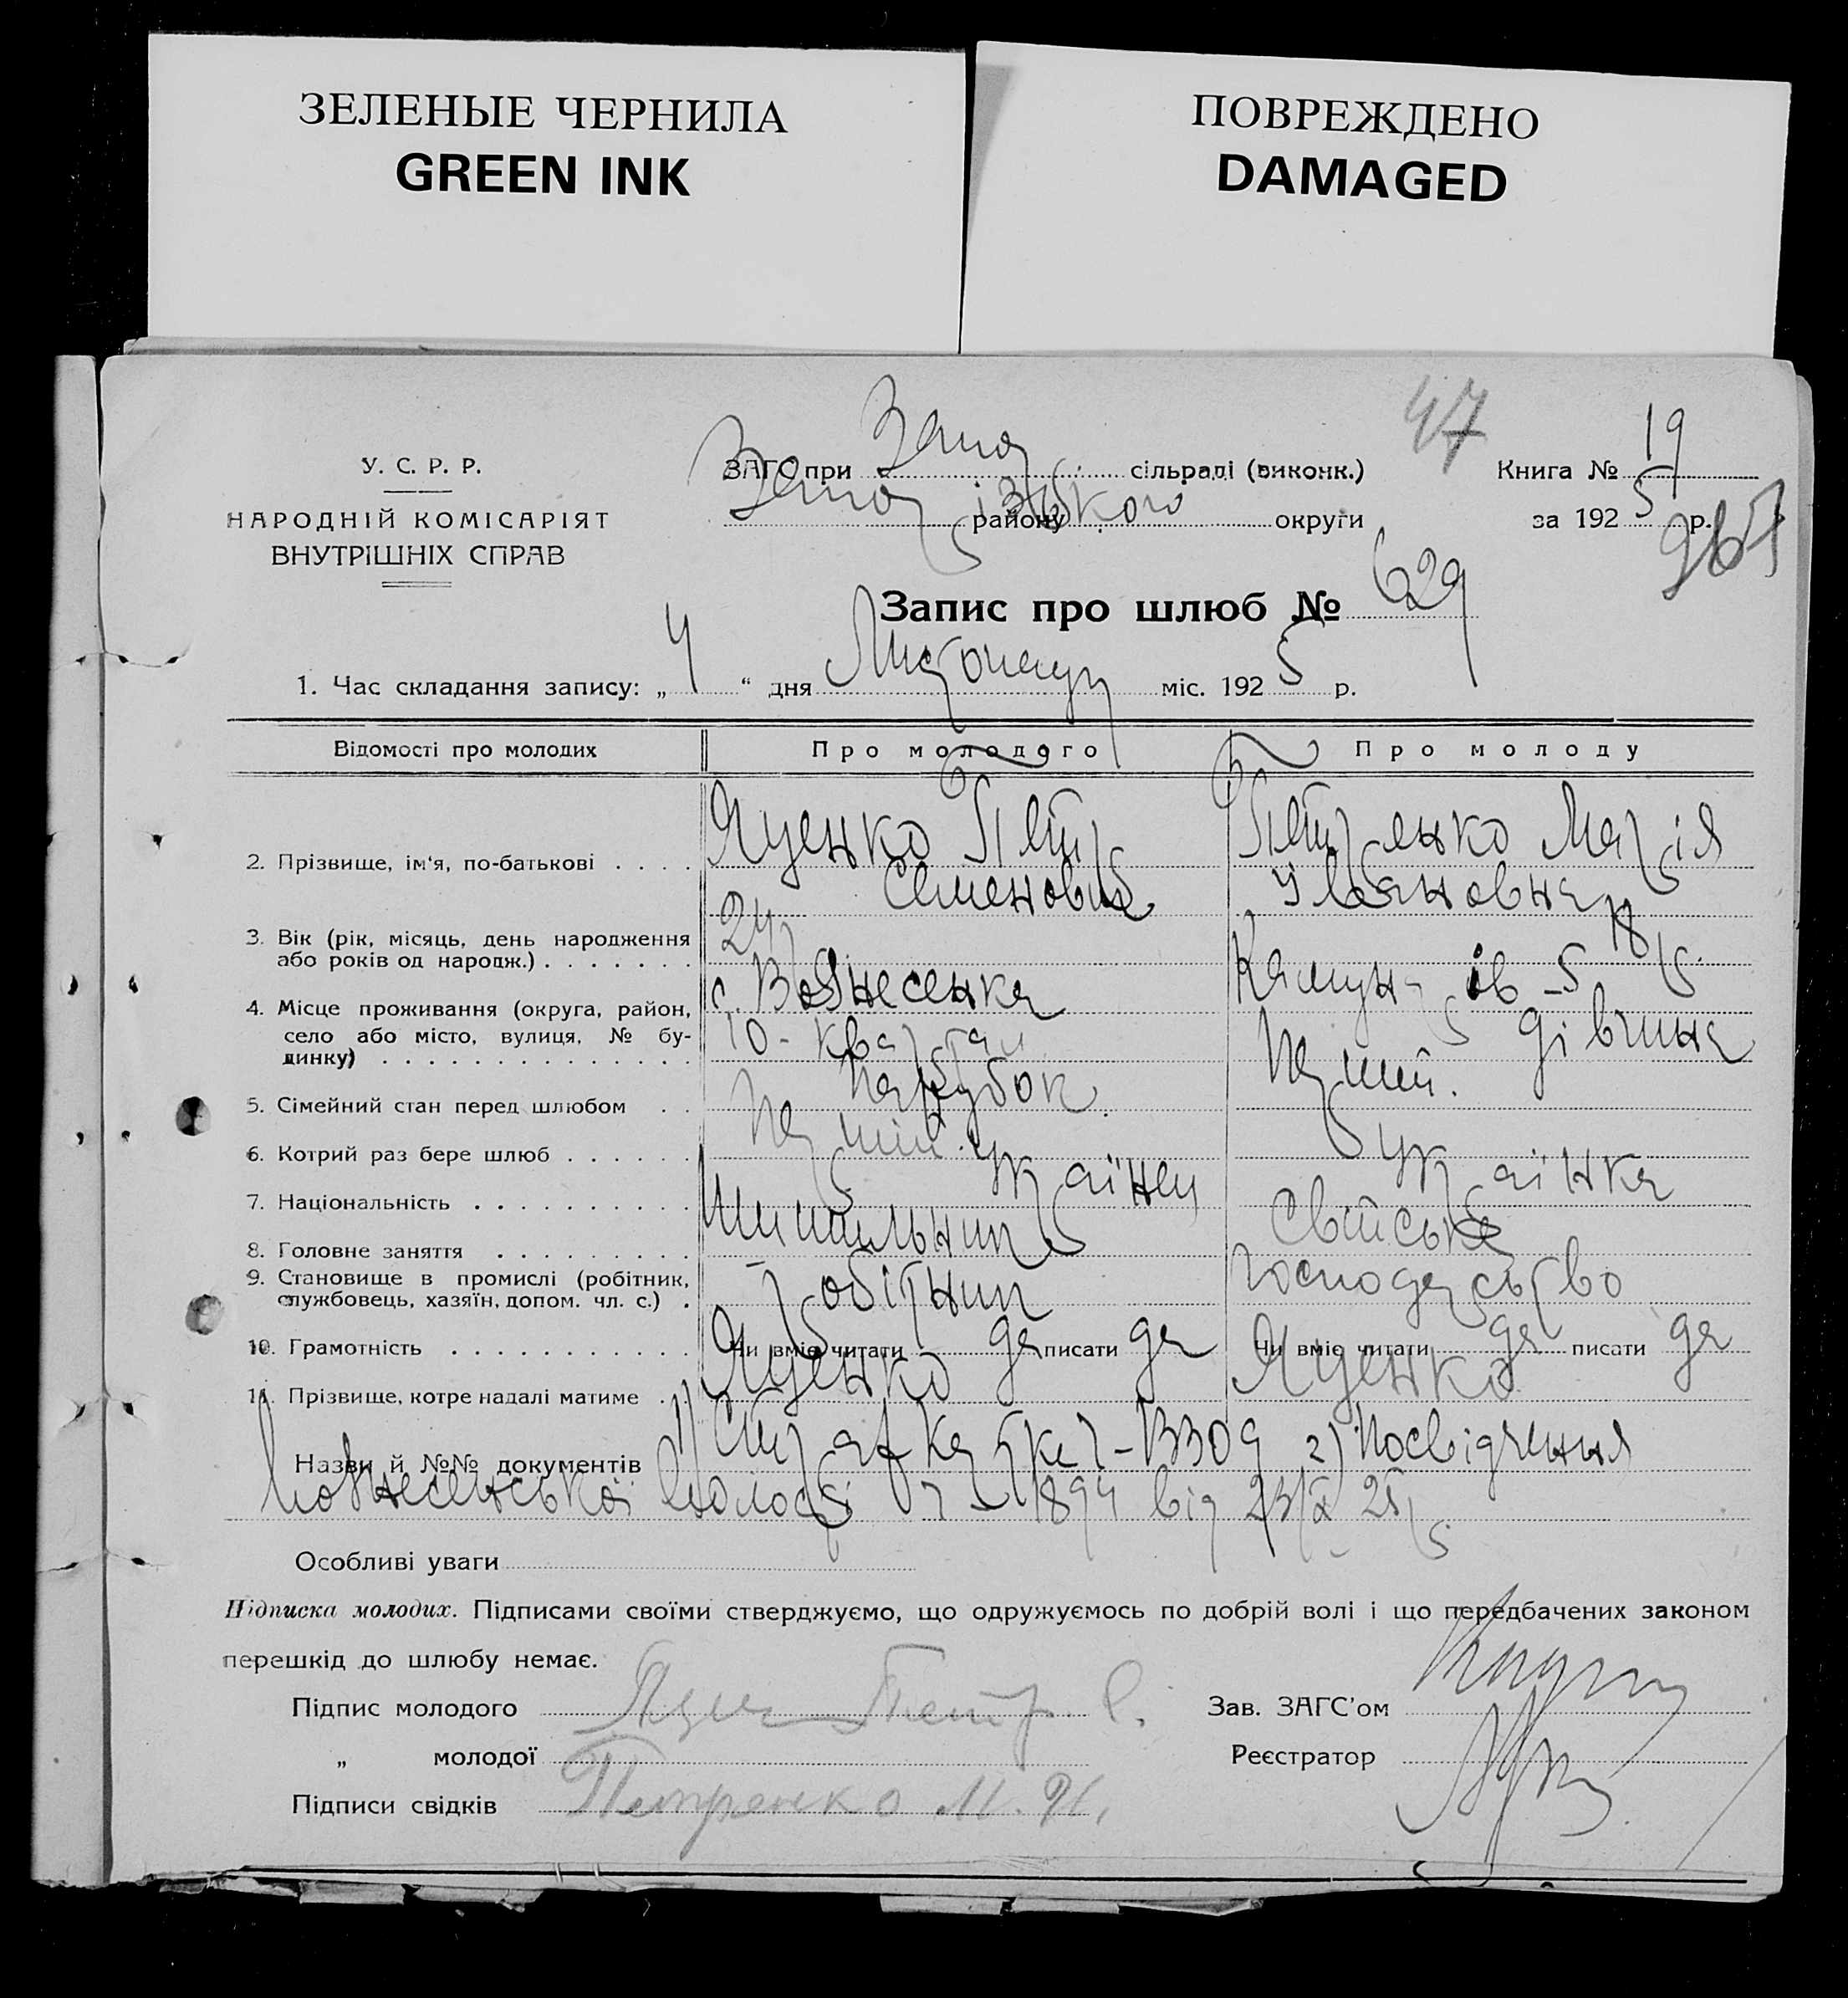 ЗЕЛЕНЫЕ ЧЕРНИЛА
GREEN INK
ПОВРЕЖДЕНО
DAMAGED
47
У. С. Р. Р.
НАРОДНІЙ КОМІСАРІЯТ
ВНУТРІШНІХ СПРАВ
ЗАГС при Запор сільраді (виконк.)
Запоріз району ького округи
Книга № 19
за 1925 р.
Запис про шлюб № 629
1. Час складання запису: „ 4 “ дня Листопаду міс. 1925 р.
Відомості про молодих Про молодого Про молоду
2. Прізвище, ім'я, по-батькові . . . . Яценко Петр Семенович Петренко Марія Ульяновна
3. Вік (рік, місяць, день народження або років од народж.) . . . . . . . 24 р 18 р.
4. Місце проживання (округа, район, село або місто, вулиця, № будинку) . . . . . . . . . . . . . . с. Вознесенка 10-квартал
5. Сімейний стан перед шлюбом . . парубок. дівчина
6. Котрий раз бере шлюб . . . . . . перший. перший.
7. Національність . . . . . . . . . . українец українка
8. Головне заняття . . . . . . . . .
9. Становище в промислі (робітник, службовець, хазяїн, допом. чл. с.) . робітник господарство
10. Грамотність . . . . . . . . . . . Чи вміє читати да писати да Чи вміє читати да писати да
11. Прізвище, котре надалі матиме . . Яценко Яценко
Назви й №№ документів 1) Страх 2) посвідчення
Вознесенської 1894 від 23/X 25 р.
Особливі уваги
Підписка молодих. Підписами своїми стверджуємо, що одружуємось по добрій волі і що передбачених законом
перешкід до шлюбу немає.
Підпис молодого Петр С.
„ молодої Петренко М. У.
Підписи свідків
Зав. ЗАГС'ом
Реєстратор